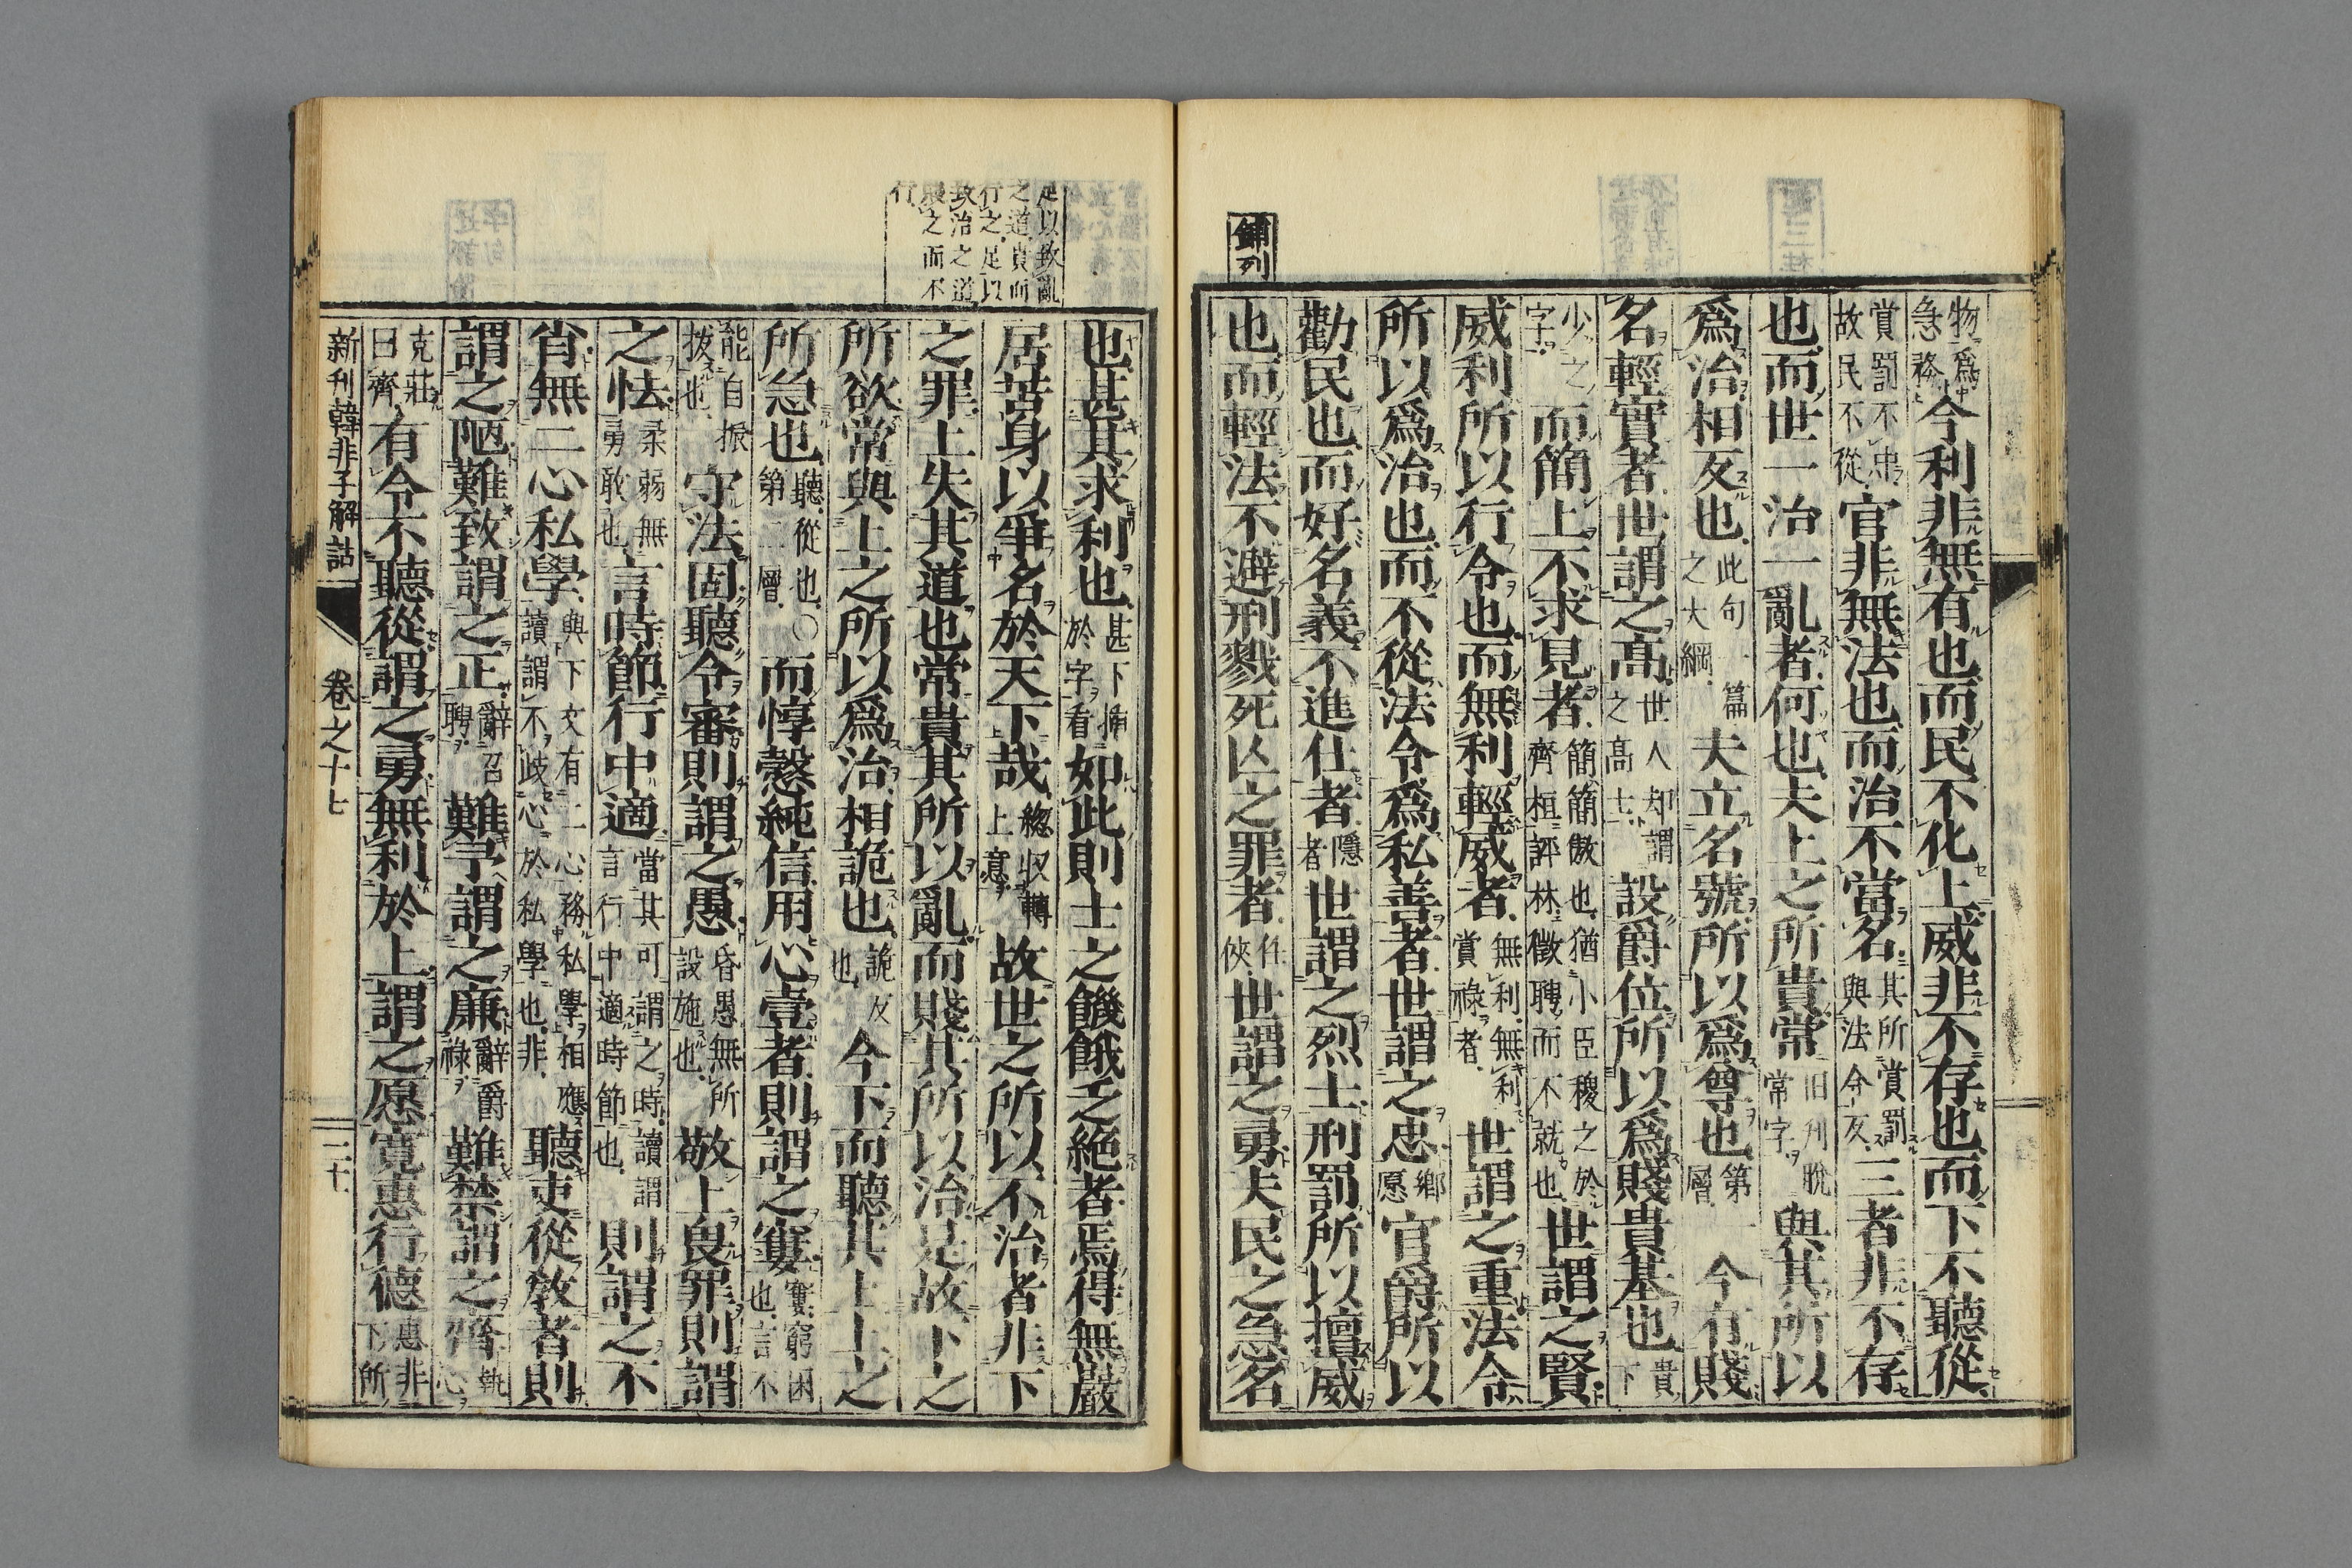 鋪列
物爲急務今利非無有也而民不化上威非不存也而下不聽從
賞罰不忠故民不從官非無法也而治不當名其所賞罰與法令反三者非不存
也而世一治一亂者何也夫上之所貴常旧刊脫常字與其所以
爲治相反也此句一篇之大綱夫立名號所以爲尊也第一層今有賤
名輕實者世謂之高世人却謂之高士設爵位所以爲賤貴基也貴下
少之字而簡上不求見者簡簡傲也猶小臣稷之於齊桓評林徵聘而不就也世謂之賢
威利所以行令也而無利輕威者無利無利賞祿者世謂之重法令
所以爲治也而不從法令爲私善者世謂之忠鄉愿官爵所以
勸民也而好名義不進仕者隱者世謂之烈士刑罰所以擅威
也而輕法不避刑戮死亾之罪者任俠世謂之勇夫民之急名
足以致亂
之道貴而
行之足以
致治之道
賤之而不
行
也甚其求利也甚下補於字看如此則士之饑餓乏絕者焉得無嚴
居苦身以爭名於天下哉總収轉上意故世之所以不治者非下
之罪上失其道也常貴其所以亂而賤其所以治是故下之
所欲常與上之所以爲治相詭也詭反也今下而聽其上上之
所急也聽從也〇第二層而惇愨純信用心壹者則謂之窶窶窮困也言不
能自振拔也守法固聽令審則謂之愚昏愚無所設施也敬上畏罪則謂
之怯柔弱無勇敢也言時節行中適當其可謂之時讀謂言行中適時節也則謂之不
肖無二心私學與下文有二心務私學相應讀謂不歧心於私學也非聽吏從敎者則
謂之陋難致謂之正辭召聘難予謂之廉辭爵祿難禁謂之齊執心
克莊曰齊有令不聽從謂之勇無利於上謂之愿寬惠行德惠非下所
新刊韓非子解詁 卷之十七 二十